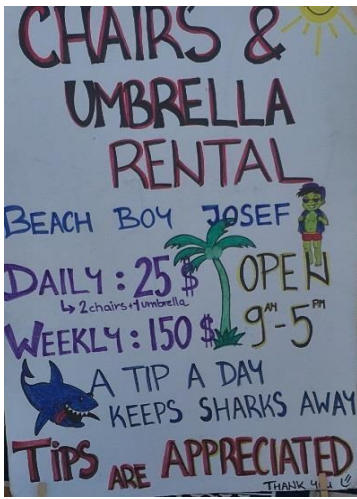 CHAIRS &
UMBRELLA
RENTAL
BEACH BOY JOSEF
DAILY : 25 $
↳ 2 chairs + 1 umbrella
WEEKLY : 150 $
OPEN
9 AM - 5 PM
A TIP A DAY
KEEPS SHARKS AWAY
TIPS ARE APPRECIATED
THANK YOU